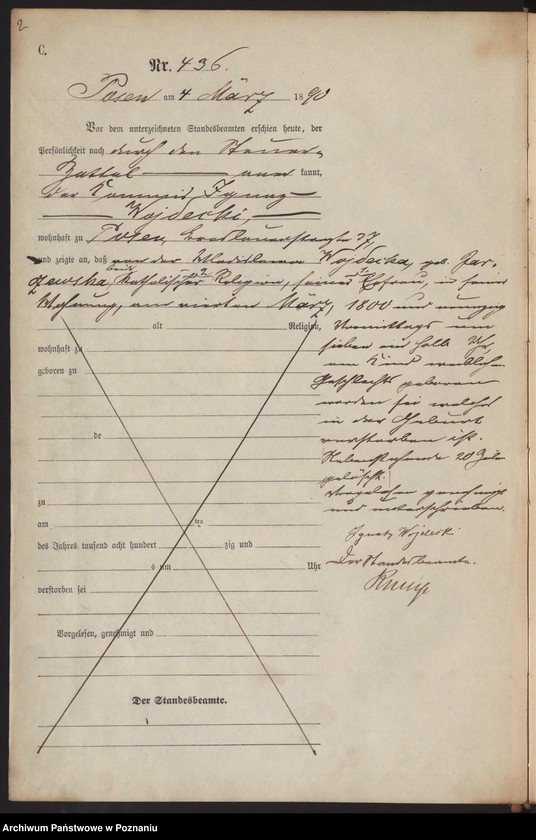 2
C.
Nr. 436.
Posen am 4 März 1890
Vor dem unterzeichneten Standesbeamten erschien heute, der
Persönlichkeit nach durch den Steuer-
Zettel anerkannt,
der Kommis Ignaz
Wojdecki,
wohnhaft zu Posen, Breslauerstraße 37,
und zeigte an, daß von der Wladislawa Wojdecka, geb. Jar-
zewska, beide katholischer Religion, seiner Ehefrau, in seiner
Wohnung, am vierten März, 1800 und neunzig
alt Religion,
wohnhaft zu
geboren zu
de
zu
am ten
des Jahres tausend acht hundert zig und
s um Uhr
verstorben sei
Vorgelesen, genehmigt und
Der Standesbeamte.
Vormittags um
sieben ein halb Uhr
ein Kind weiblichen
Geschlechts geboren
worden sei welches
in der Geburt
verstorben ist.
Nebenstehende 20 Zeilen
gelöscht.
Vorgelesen genehmigt
und unterschrieben.
Ignatz Wojdecki
Der Standesbeamte.
Archiwum Państwowe w Poznaniu